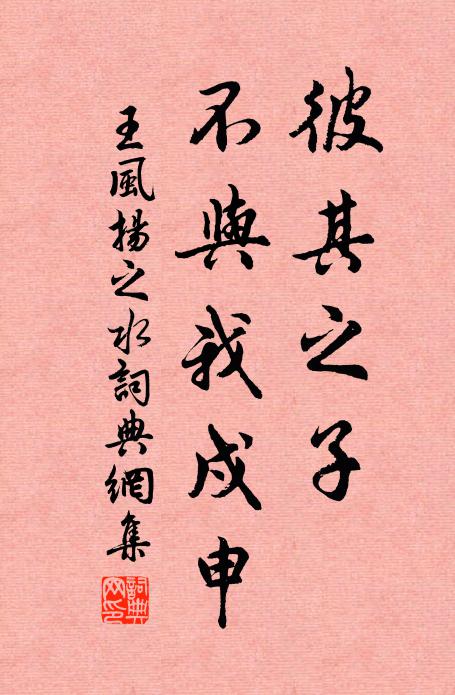 彼其之子
不與我戍申
王風揚之水詞典網集
詞典
网印